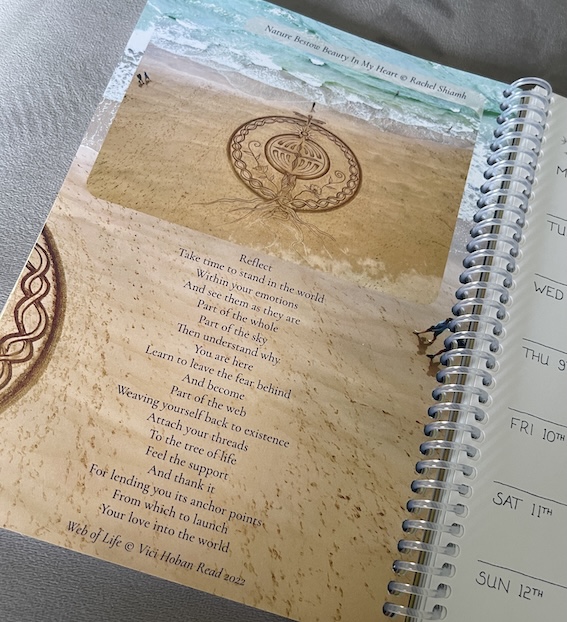 Nature Bestow Beauty In My Heart © Rachel Shiamh
Reflect
Take time to stand in the world
Within your emotions
And see them as they are
Part of the whole
Part of the sky
Then understand why
You are here
Learn to leave the fear behind
And become
Part of the web
Weaving yourself back to existence
Attach your threads
To the tree of life
Feel the support
And thank it
For lending you its anchor points
From which to launch
Your love into the world
Web of Life © Vici Hoban Read 2022
M
TU
WED
THU 9
FRI 10TH
SAT 11TH
SUN 12TH